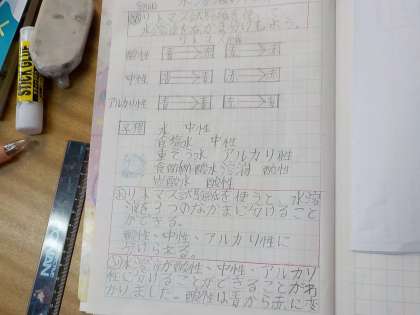 リトマス試験紙を使って
水溶液をなかま分けしよう。
酸性
中性 青 青 赤 赤
アルカリ性
結果 水 中性
食塩水 中性
重そう水 アルカリ性
酸性
炭酸水 酸性
リトマス試験紙を使うと、水溶
液を3つのなかまに分けること
ができる。
酸性、中性、アルカリ性に
分けられる。
酸性、中性、アルカリ
性に分けることができることがわ
かりました。酸性は青から赤に変
STICK GLUE